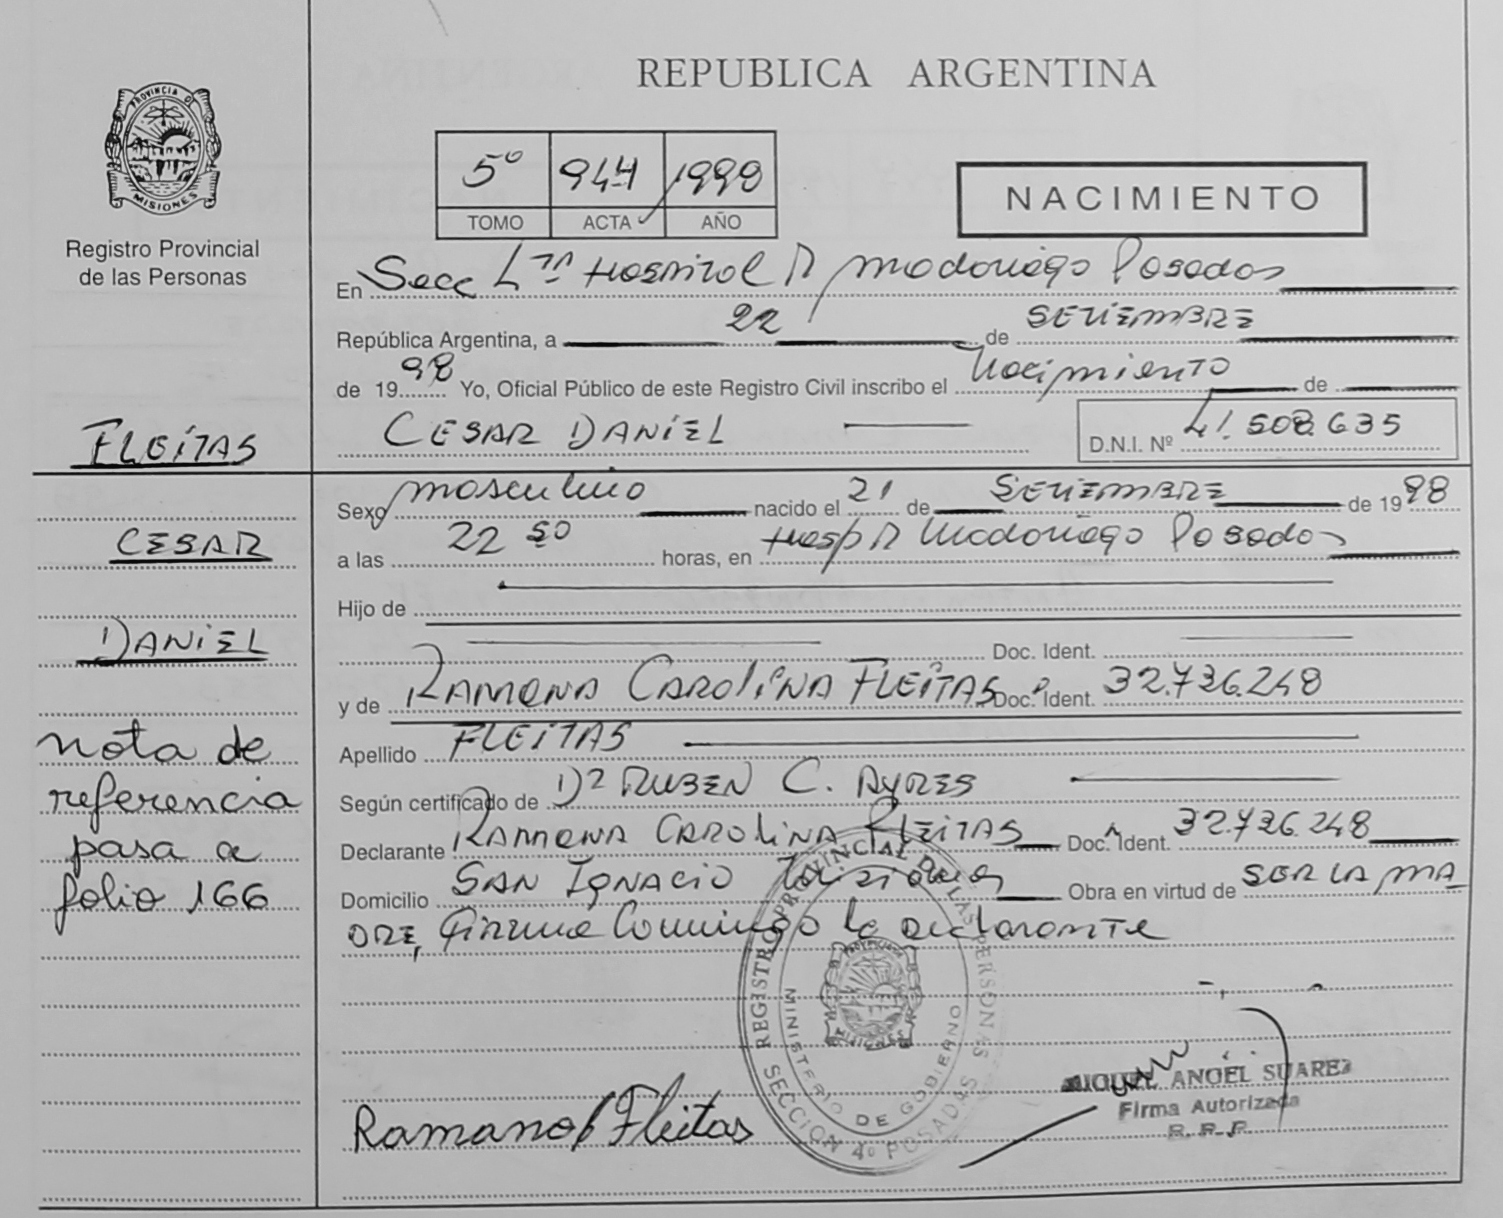 REPUBLICA ARGENTINA
PROVINCIA DE
MISIONES
Registro Provincial
de las Personas
5º 944 1998
TOMO ACTA AÑO
NACIMIENTO
En Secc 4ta Hospital R Madariaga Posadas
República Argentina, a 22 de SETIEMBRE
de 1998 Yo, Oficial Público de este Registro Civil inscribo el Nacimiento de
CESAR DANIEL D.N.I. Nº 41.508.635
FLEITAS
CESAR
DANIEL
nota de
referencia
pasa a
folio 166
Sexo masculino nacido el 21 de SETIEMBRE de 1998
a las 22 50 horas, en Hosp R Madariaga Posadas
Hijo de
Doc. Ident.
y de RAMONA CAROLINA FLEITAS Doc. Ident. 32.726.248
Apellido FLEITAS
Según certificado de Dr RUBEN C. AYRES
Declarante RAMONA CAROLINA FLEITAS Doc. Ident. 32.726.248
Domicilio SAN IGNACIO Misiones Obra en virtud de SER LA MA
DRE, Firma Conmigo la declarante
REGISTRO PROVINCIAL DE LAS PERSONAS
MINISTERIO DE GOBIERNO
SECCION 4º POSADAS
Ramona Fleitas
MIGUEL ANGEL SUAREZ
Firma Autorizada
R. P. P.